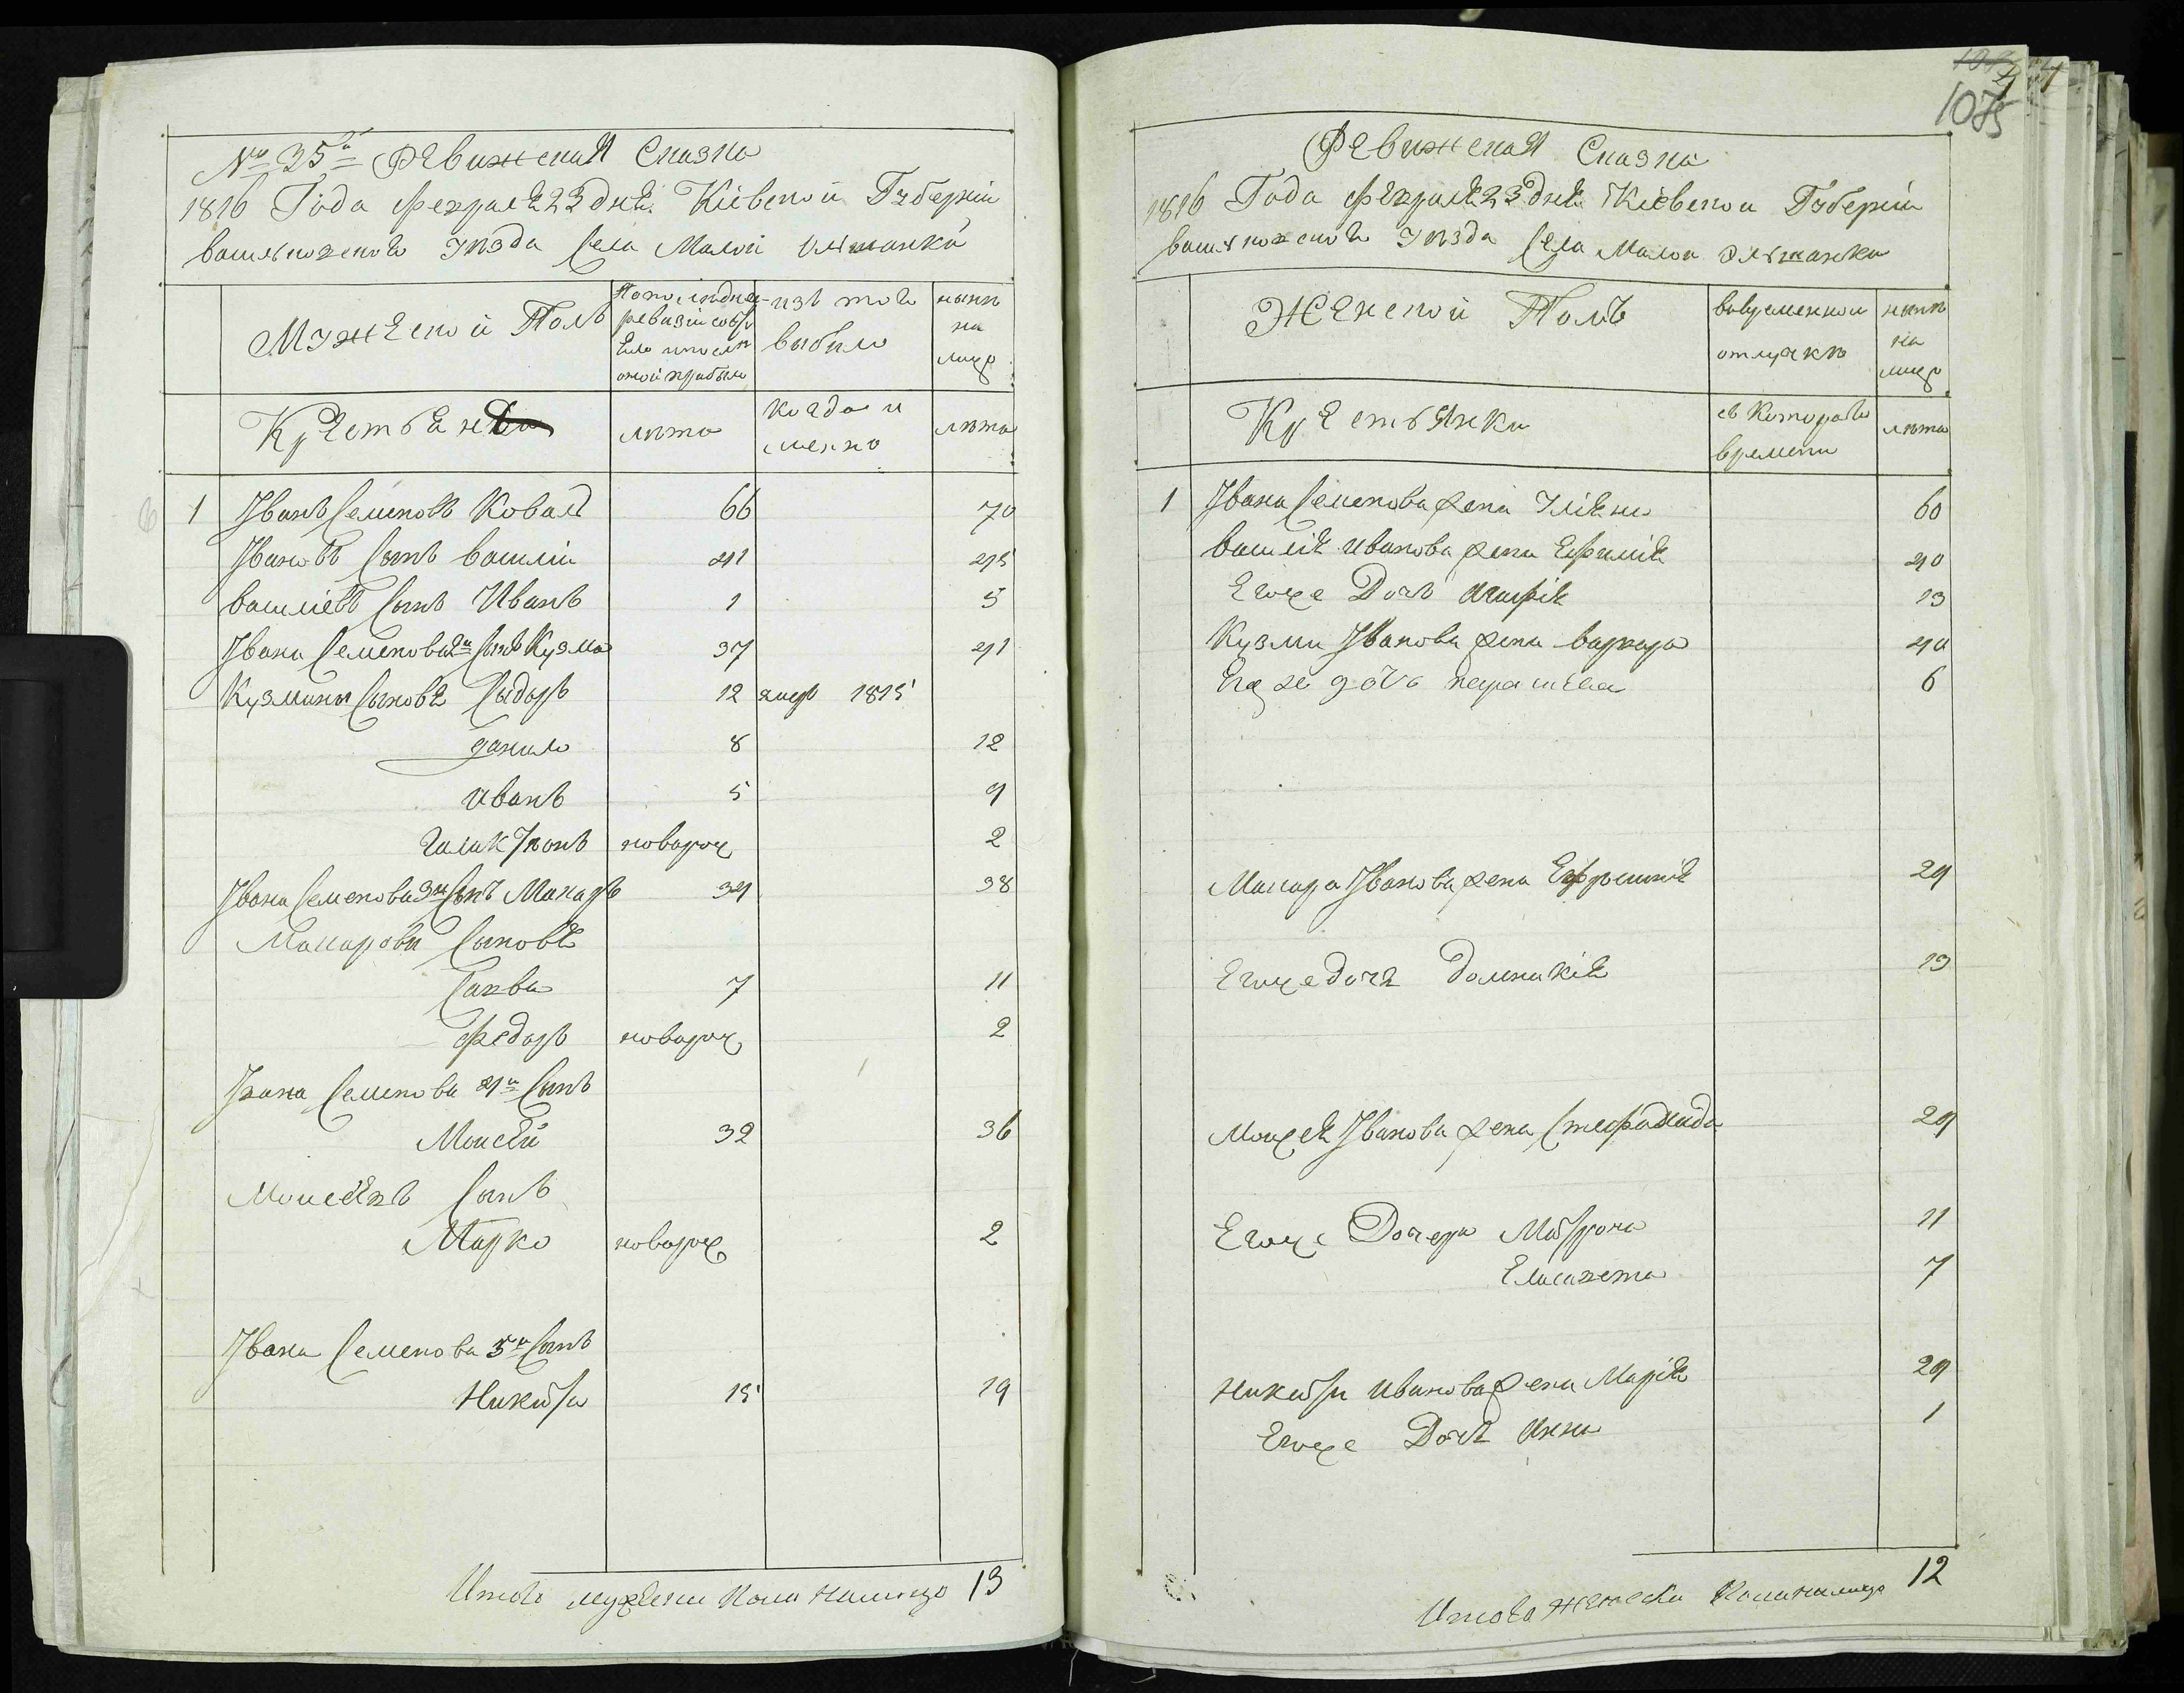 № 35й Ревижская Сказка
1816 Года февраля 23 дня Кіевской Губерніи
васильковского Уезда Села Малой Ольшанки
Мужеской Полъ
По последней ревизіи состояло и после оной прибыло
изъ того выбыло
ныне на лицо
Крестьяне
лета
когда именно
лета
1 Іванъ Семеновъ Коваль 66 70
Івановъ Сынъ василій 41 45
василіевъ Сынъ Иванъ 1 5
Івана Семенова 2й Сынъ Кузма 37 41
Кузмины Сыновья Сыдоръ 12 умръ 1815
данило 8 12
иванъ 5 9
Галактіонъ новорож 2
Івана Семенова 3й Сынъ Макаръ 34 38
Макаровы Сыновья
Савва 7 11
Федоръ новорож 2
Івана Семенова 4й Сынъ
Моисей 32 36
Моисеявъ Сынъ
Марко новорож 2
Івана Семенова 5й Сынъ
Никита 15 19
Итого мужеска пола налицо 13
1075
Ревижская Сказка
1816 Года февраля 23 дня Кіевской Губерніи
васильковского Уезда Села Малой Ольшанки
Женской Полъ
вовременной отлучке
ныне на лицо
Крестьянки
съ которого времени
лета
1 Івана Семенова жена Уліяна 60
василія иванова жена Ефимія 40
Егоже Дочь Агафія 13
Кузми Іванова жена варвара 40
Егоже дочь параскева 6
Макара Іванова жена Ефросинія 29
Егоже дочь домникія 13
Моисея Іванова жена Стефанида 29
Егоже Дочери Матрона 11
Елисавета 7
Никиты иванова жена Марія 29
Егоже Дочь Анна 1
Итого женска пола налицо 12